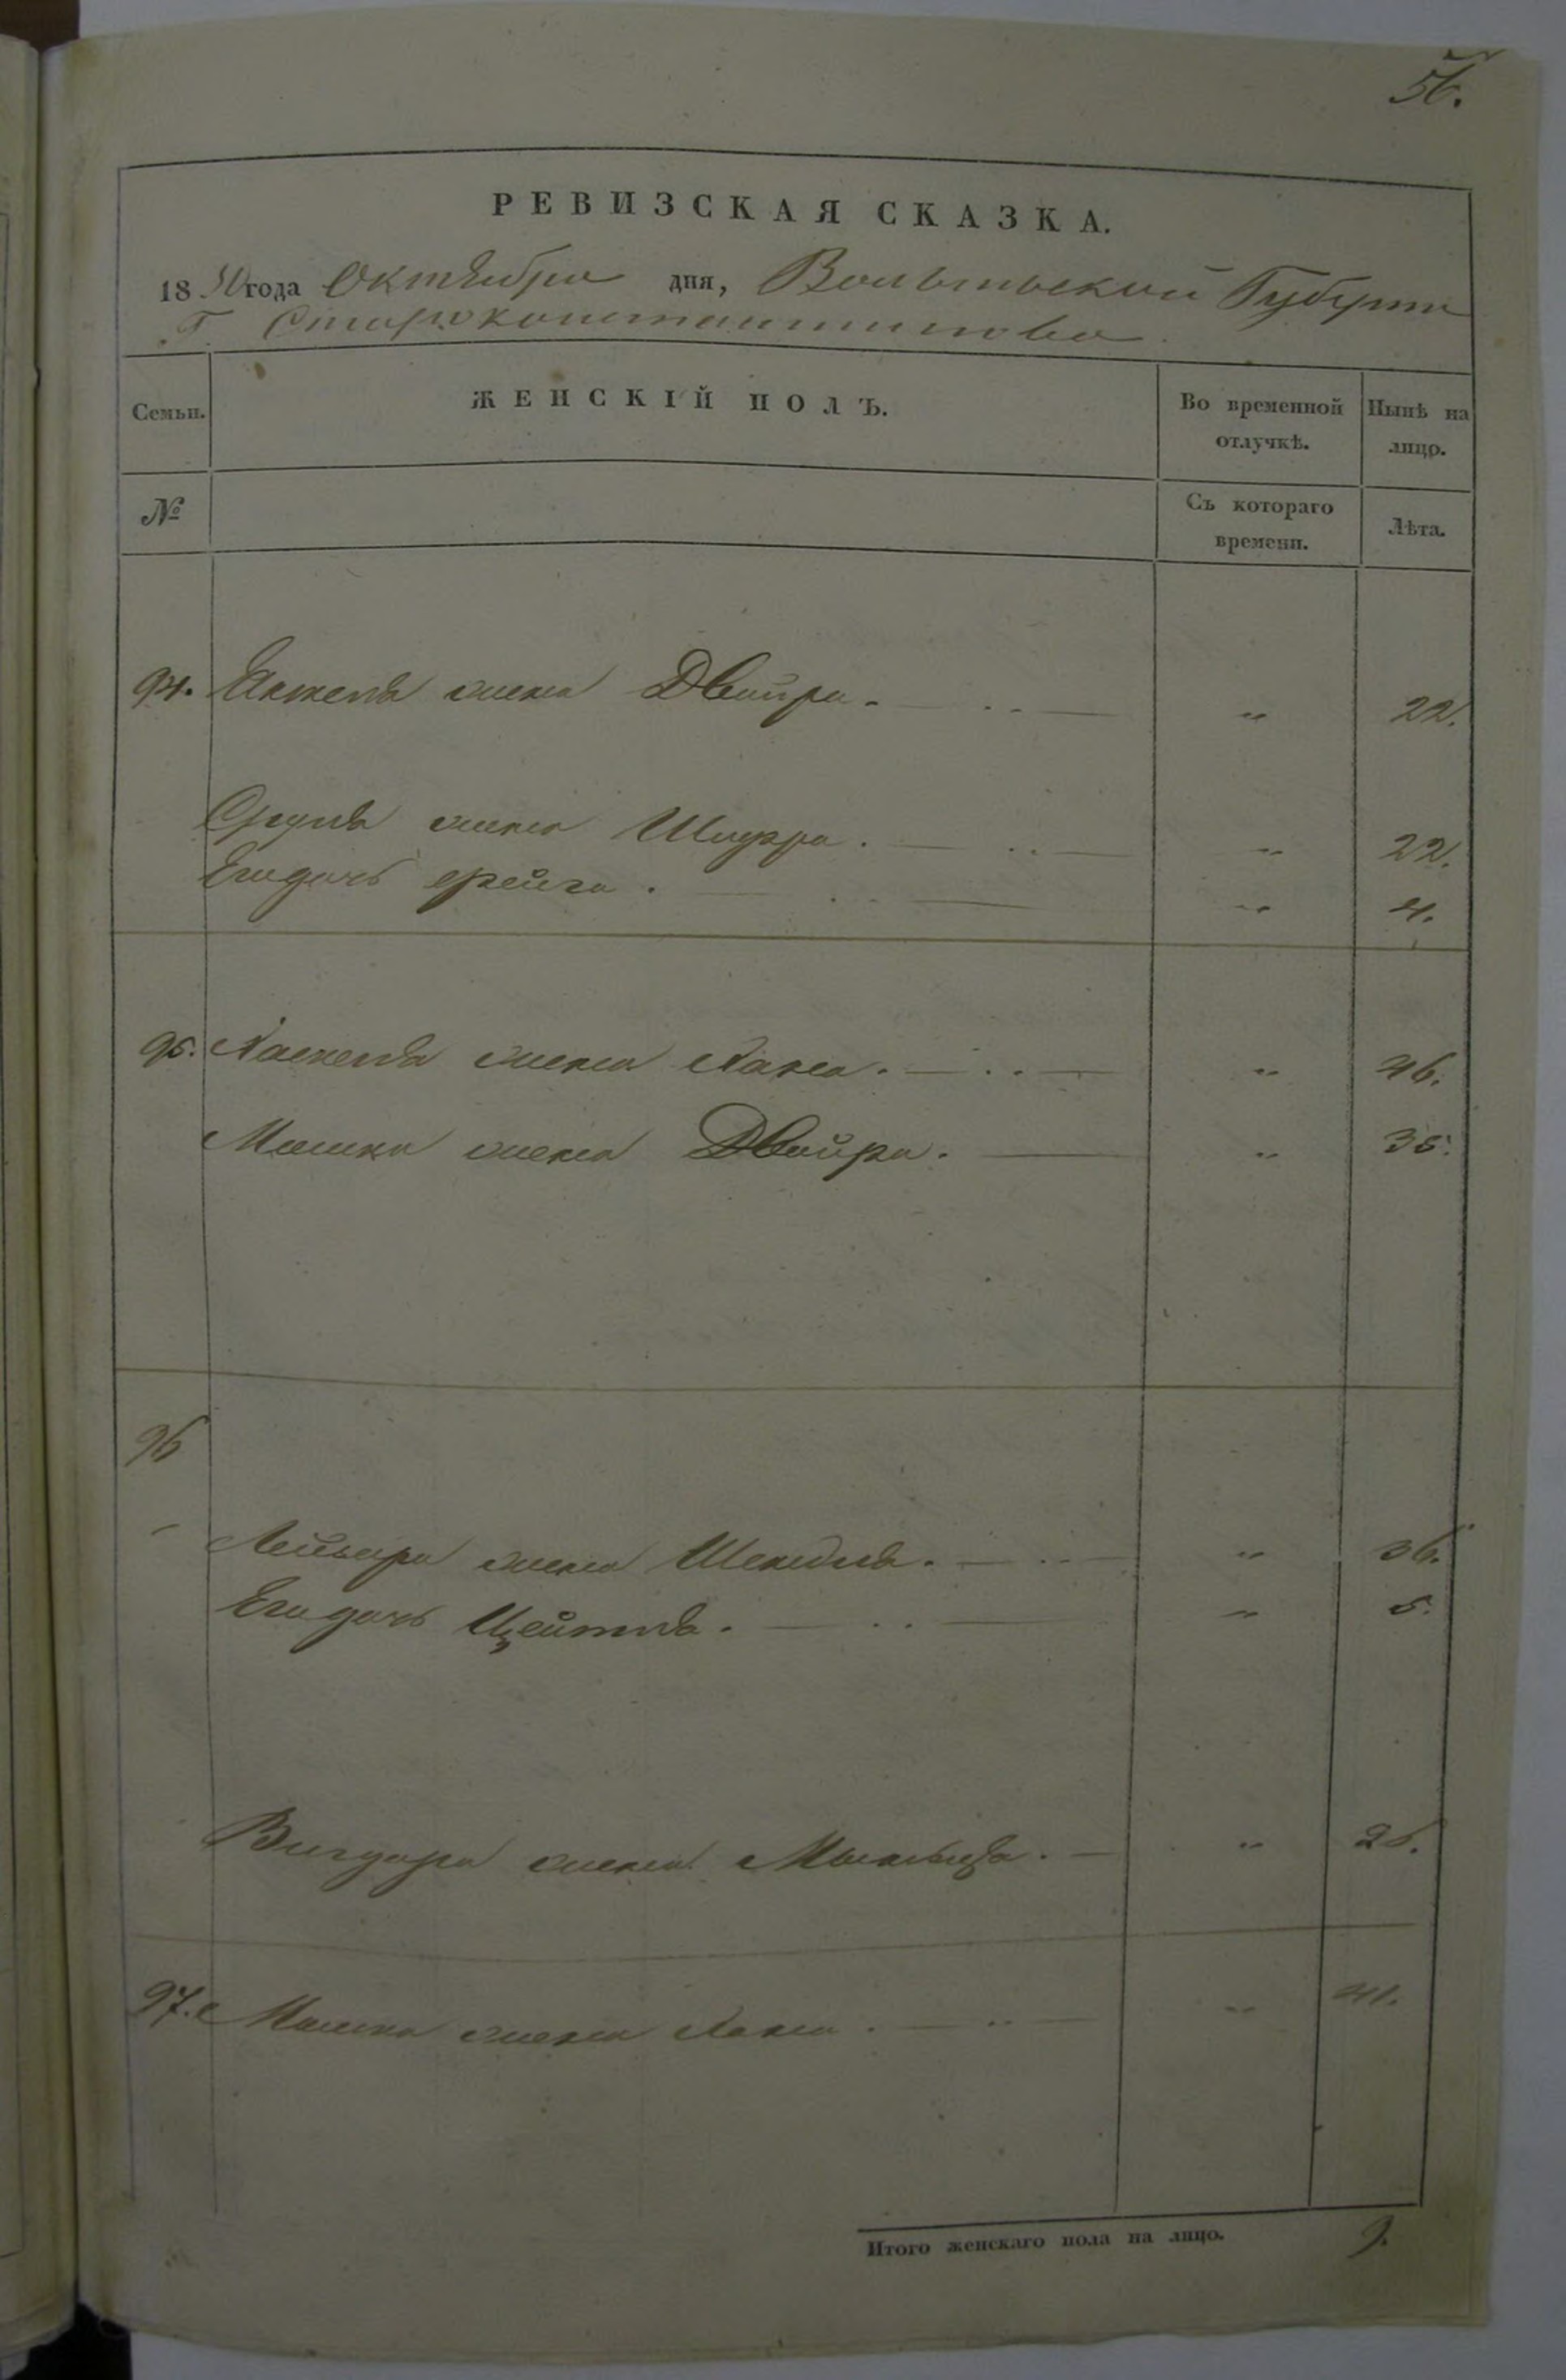 56.
РЕВИЗСКАЯ СКАЗКА.
1850 года Октября дня, Волынской Губернии
Г. Староконстантинова.
Семьи. ЖЕНСКІЙ ПОЛЪ. Во временной отлучкѣ. Нынѣ на лицо.
№ Съ котораго времени. Лѣта.
94. жена Двойра. — „ 22.
Сруля жена — „ 22.
Его дочь Фейга. — „ 4.
95. Хаскеля жена Хана. — „ 46.
Мошка жена Двойра. — „ 35.
96
Лейзера жена Шейндля. — „ 36.
Его дочь Цейтля. — „ 5.
Вигдора жена — „
97. Мошка жена Хана. — „ 41.
Итого женскаго пола на лицо. 9.